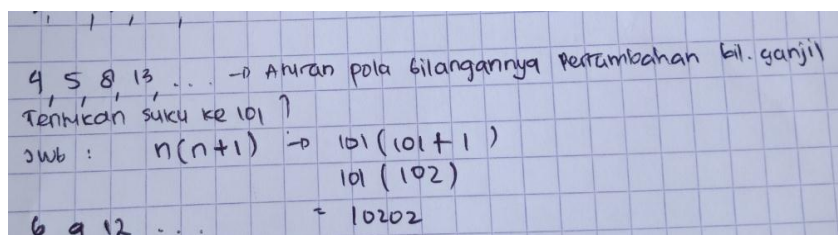 4, 5, 8, 13, ... → Aturan pola bilangannya Pertambahan bil. ganjil
Tentukan suku ke 101 ?
Jwb : n(n+1) → 101 (101 + 1)
101 (102)
= 10202
6 9 12 ...